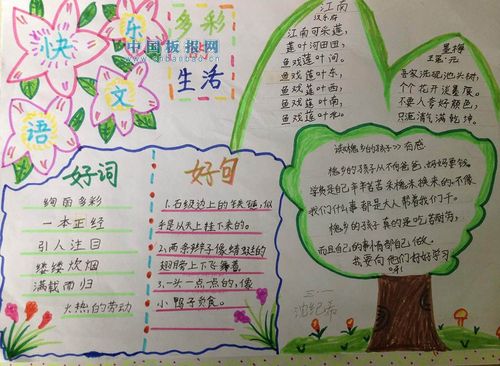 快
乐
语
文
多彩
生活
中国板报网
好词
绚丽多彩
一本正经
引人注目
缕缕炊烟
满载而归
火热的劳动
好句
1.石级边上的铁链,似
乎是从天上挂下来的。
2.两条辫子像蜻蜓的
翅膀上下飞舞着。
3.一头一点一点的,像
小鸭子负食。
江南
汉乐府
江南可采莲,
莲叶何田田,
鱼戏莲叶间。
鱼戏莲叶东,
鱼戏莲叶西,
鱼戏莲叶南,
鱼戏莲叶北。
墨梅
王冕·元
吾家洗砚池头树,
个个花开淡墨痕。
不要人夸好颜色,
只流清气满乾坤。
读槐乡的孩子>>有感
槐乡的孩子从不向爸爸、妈妈要钱。
学费是自己辛辛苦苦采槐米换来的。不像
我们什么事都是大人帮着我们干。
槐乡的孩子真的是吃苦耐劳,
而且自己的事情都自己做。
我要向他们好好学习
三
沈纪希